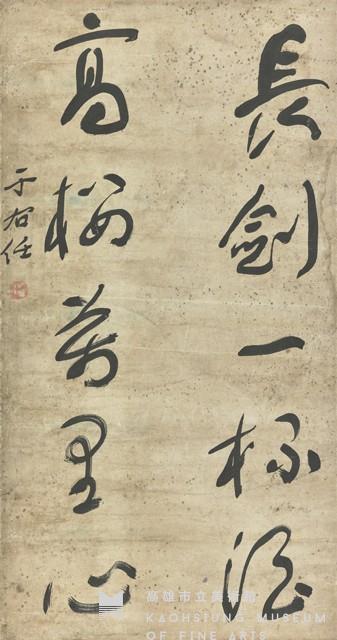 長劍一杯酒
高樓萬里心
于右任
高雄市立美術館
KAOHSIUNG MUSEUM
OF FINE ARTS